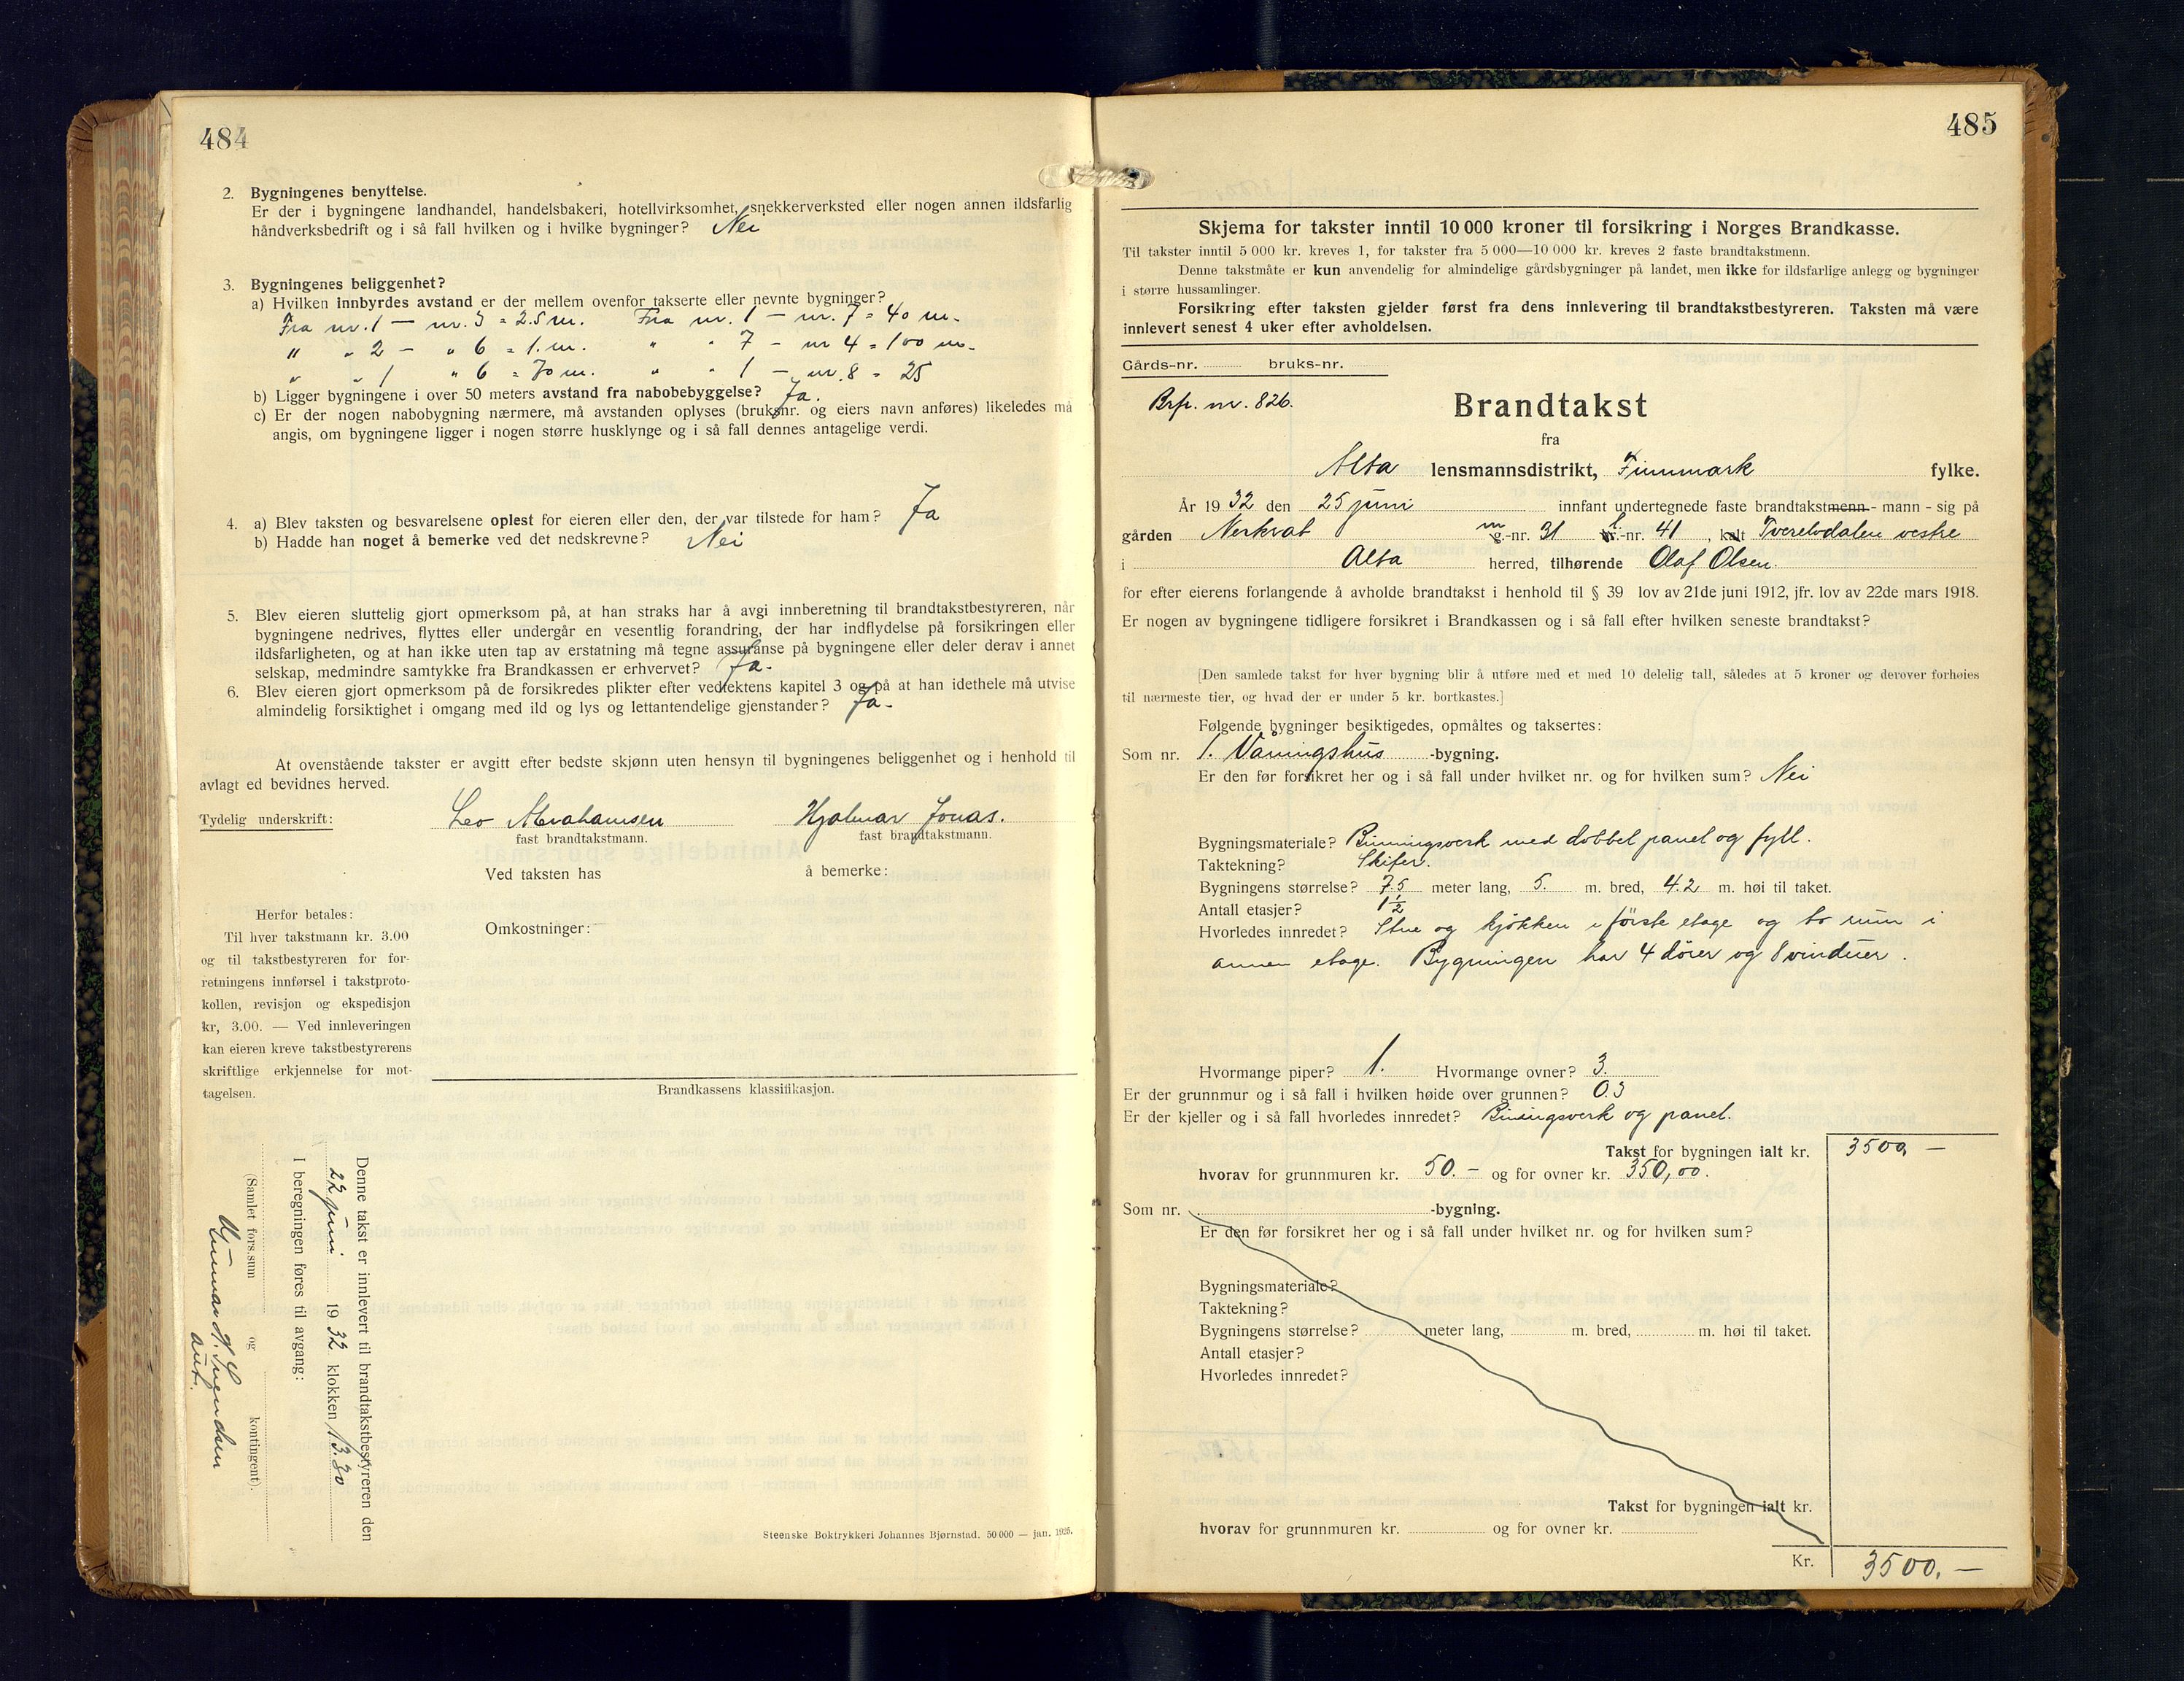 484
2. Bygningenes benyttelse.
Er der i bygningene landhandel, handelsbakeri, hotellvirksomhet, snekkerverksted eller nogen annen ildsfarlig
håndverksbedrift og i så fall hvilken og i hvilke bygninger? Nei
3. Bygningenes beliggenhet?
a) Hvilken innbyrdes avstand er der mellem ovenfor takserte eller nevnte bygninger?
Fra nr. 1 — nr. 3 = 2.5 m. Fra nr. 1 — nr. 7 = 40 m.
" " 2 - " 6 = 1. m. " " 7 - nr 4 = 100 m.
" " 1 " 6 = 70 m. " " 1 - nr. 8 = 25
b) Ligger bygningene i over 50 meters avstand fra nabobebyggelse? Ja.
c) Er der nogen nabobygning nærmere, må avstanden oplyses (bruksnr. og eiers navn anføres) likeledes må
angis, om bygningene ligger i nogen større husklynge og i så fall dennes antagelige verdi.
4. a) Blev taksten og besvarelsene oplest for eieren eller den, der var tilstede for ham? Ja
b) Hadde han noget å bemerke ved det nedskrevne? Nei
5. Blev eieren sluttelig gjort opmerksom på, at han straks har å avgi innberetning til brandtakstbestyreren, når
bygningene nedrives, flyttes eller undergår en vesentlig forandring, der har indflydelse på forsikringen eller
ildsfarligheten, og at han ikke uten tap av erstatning må tegne assuranse på bygningene eller deler derav i annet
selskap, medmindre samtykke fra Brandkassen er erhvervet? Ja.
6. Blev eieren gjort opmerksom på de forsikredes plikter efter vedtektens kapitel 3 og på at han idethele må utvise
almindelig forsiktighet i omgang med ild og lys og lettantendelige gjenstander? Ja.
At ovenstående takster er avgitt efter bedste skjønn uten hensyn til bygningenes beliggenhet og i henhold til
avlagt ed bevidnes herved.
Tydelig underskrift: Leo Abrahamsen Hjalmar Jonas.
fast brandtakstmann. fast brandtakstmann.
Ved taksten has å bemerke:
Herfor betales:
Til hver takstmann kr. 3.00
og til takstbestyreren for for-
retningens innførsel i takstproto-
kollen, revisjon og ekspedisjon
kr, 3.00. — Ved innleveringen
kan eieren kreve takstbestyrerens
skriftlige erkjennelse for mot-
tagelsen.
Omkostninger:
Brandkassens klassifikasjon.
Denne takst er innlevert til brandtakstbestyreren den
22 juni 1932 klokken 13.30
I beregningen føres til avgang:
(Samlet fors.sum og kontingent).
aut.
Steenske Boktrykkeri Johannes Bjørnstad. 50 000 — jan. 1925.
485
Skjema for takster inntil 10 000 kroner til forsikring i Norges Brandkasse.
Til takster inntil 5 000 kr. kreves 1, for takster fra 5 000—10 000 kr. kreves 2 faste brandtakstmenn.
Denne takstmåte er kun anvendelig for almindelige gårdsbygninger på landet, men ikke for ildsfarlige anlegg og bygninger
i større hussamlinger.
Forsikring efter taksten gjelder først fra dens innlevering til brandtakstbestyreren. Taksten må være
innlevert senest 4 uker efter avholdelsen.
Gårds-nr. bruks-nr.
Brf. nr. 826.
Brandtakst
fra
Alta lensmannsdistrikt, Finnmark fylke.
År 1932 den 25 juni innfant undertegnede faste brandtakstmenn - mann - sig på
gården Nerkvat m g.-nr. 31 l br.-nr. 41, kalt Tverelvdalen vestre
i Alta herred, tilhørende Olaf Olsen.
for efter eierens forlangende å avholde brandtakst i henhold til § 39 lov av 21de juni 1912, jfr. lov av 22de mars 1918.
Er nogen av bygningene tidligere forsikret i Brandkassen og i så fall efter hvilken seneste brandtakst?
[Den samlede takst for hver bygning blir å utføre med et med 10 delelig tall, således at 5 kroner og derover forhøies
til nærmeste tier, og hvad der er under 5 kr. bortkastes.]
Følgende bygninger besiktigedes, opmåltes og taksertes:
Som nr. 1. Våningshus -bygning.
Er den før forsikret her og i så fall under hvilket nr. og for hvilken sum? Nei
Bygningsmateriale? Binningsverk med dobbel panel og fyll.
Taktekning? Skifer.
Bygningens størrelse? 7.5 meter lang, 5. m. bred, 4.2 m. høi til taket.
Antall etasjer? 1½
Hvorledes innredet? Stue og kjøkken i første etage og to rum i
annen etage. Bygningen har 4 dører og 8 vinduer.
Hvormange piper? 1. Hvormange ovner? 3.
Er der grunnmur og i så fall i hvilken høide over grunnen? 0.3
Er der kjeller og i så fall hvorledes innredet? Binningsverk og panel.
Takst for bygningen ialt kr. 3500,—
hvorav for grunnmuren kr. 50.- og for ovner kr. 350,00.
Som nr. -bygning.
Er den før forsikret her og i så fall under hvilket nr. og for hvilken sum?
Bygningsmateriale?
Taktekning?
Bygningens størrelse? meter lang, m. bred, m. høi til taket.
Antall etasjer?
Hvorledes innredet?
Takst for bygningen ialt kr.
hvorav for grunnmuren kr. og for ovner kr.
Kr. 3500.—